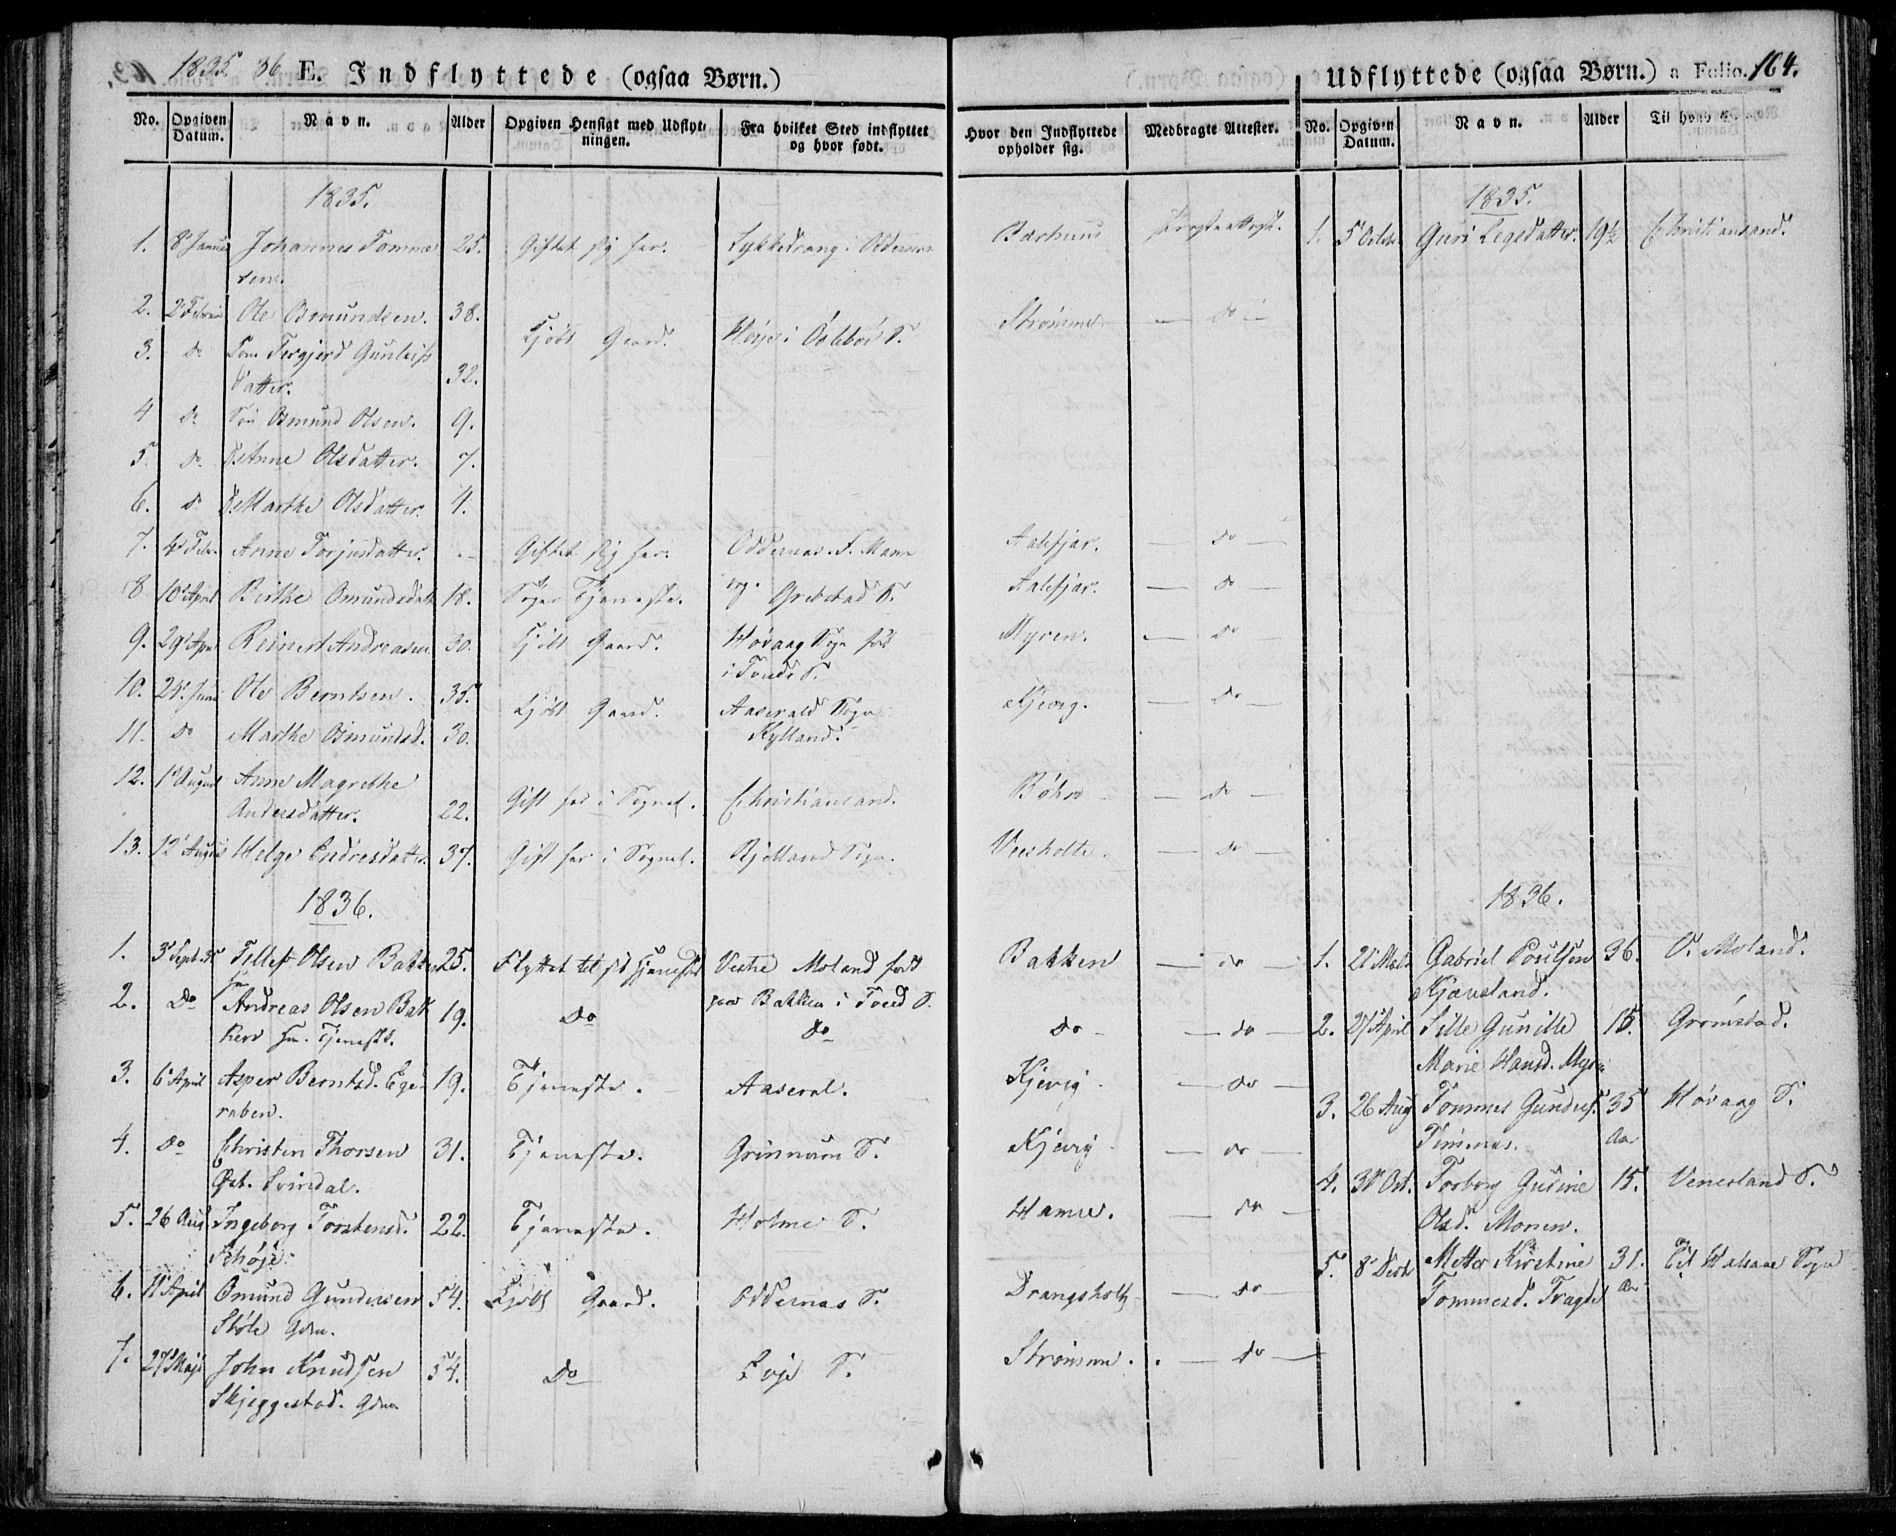 1835. 36 E. Indflyttede (ogsaa Børn.)
Udflyttede (ogsaa Børn.) a Folio. 164.
No. Opgiven Datum. Navn. Alder Opgiven Hensigt med Udflytningen. Fra hvilket Sted indflyttet og hvor født. Hvor den Indflyttede opholder sig. Medbragte Attester.
No. Opgiven Datum. Navn. Alder Til hvad
1835.
1. 8 Januar Johannes Tommesen. 25. Giftet sig her. Lykkedrang i Oddernes Præsteattest.
2. 2 Februar Ole Osmundsen. 38. Kjøbt Gaard. Høye i Øslebøe S. Strømme do
3. do Torgjerd Gunlufsdatter. 32.
4 do Søn Osmund Olsen. 9.
5. do D. Anne Olsdatter. 7.
6. do D. Marthe Olsdatter. 4.
7. 4 Febr. Anne Torjusdatter. - Giftet sig her. Oddernes. Aalefjær. do
8 10 April Birthe Omundsdatt 18. Søger Tjeneste. Grebstad S. Aalefjær. do
9. 29 April Reinert Andreasen 30. Kjøbt Gaard. Høvaag Sogn født i Tveds S. Myren. do
10. 24. Juni Ole Berntsen. 35. Kjøbt Gaard. Aaserald Sogn Kylland. Kjevig. do
11. do Marthe Osmundsd. 30.
12. 1 August Anne Magrethe Andersdatter. 22. Gift her i Sognet. Christiansand. Bøhn do
13. 12 August Helge Endresdatter. 37. Gift her i Sognet. Bjelland Sogn. Veesholte. do
1836.
1. 3 Sept. 35 Tellef Olsen Bakken 25. Flyttet til sit Hjemsted Vestre Moland født paa Bakken i Tved S. Bakken do
2. Do Andreas Olsen Bakken Tjeneste. 19. Do Do do do
3. 6 April Asper Berntsd. Egeraben. 19. Tjeneste. Aaseral. Kjevig do
4. Do Christen Thorsen Øst. Svindal. 31. Tjeneste. Grinnum S. Kjevig do
5. 26 Aug Ingeborg Torstensd. 22. Tjeneste. Holme S. Hamre. do
6. 11 April Omund Gundersen Støle Gdm. 54. Kjøbt Gaard. Oddernes S. Drangsholt do
7. 27 Maji John Knudsen Skjeggestad. Gdm. 54. Do Evje S. Strømme. do
1835.
1. 5 Octob Guri Legsdatter. 19½ Christiansand.
1836.
1. 21 Mai Gabriel Poulsen Kjævsland. 36. V. Moland.
2. 27 April Sille Gunille Marie Hansd. Myren 15. Grømstad.
3. 26 Aug Tommes Gunders. Timenes. 35 Aar Høvaag S.
4. 30 Oct. Torborg Gurine Olsd. Monen. 15. Venesland S.
5. 8 Decbr Mette Kirstine Tommesd. Tragdel 31. Aar Til Halsaae Sogn